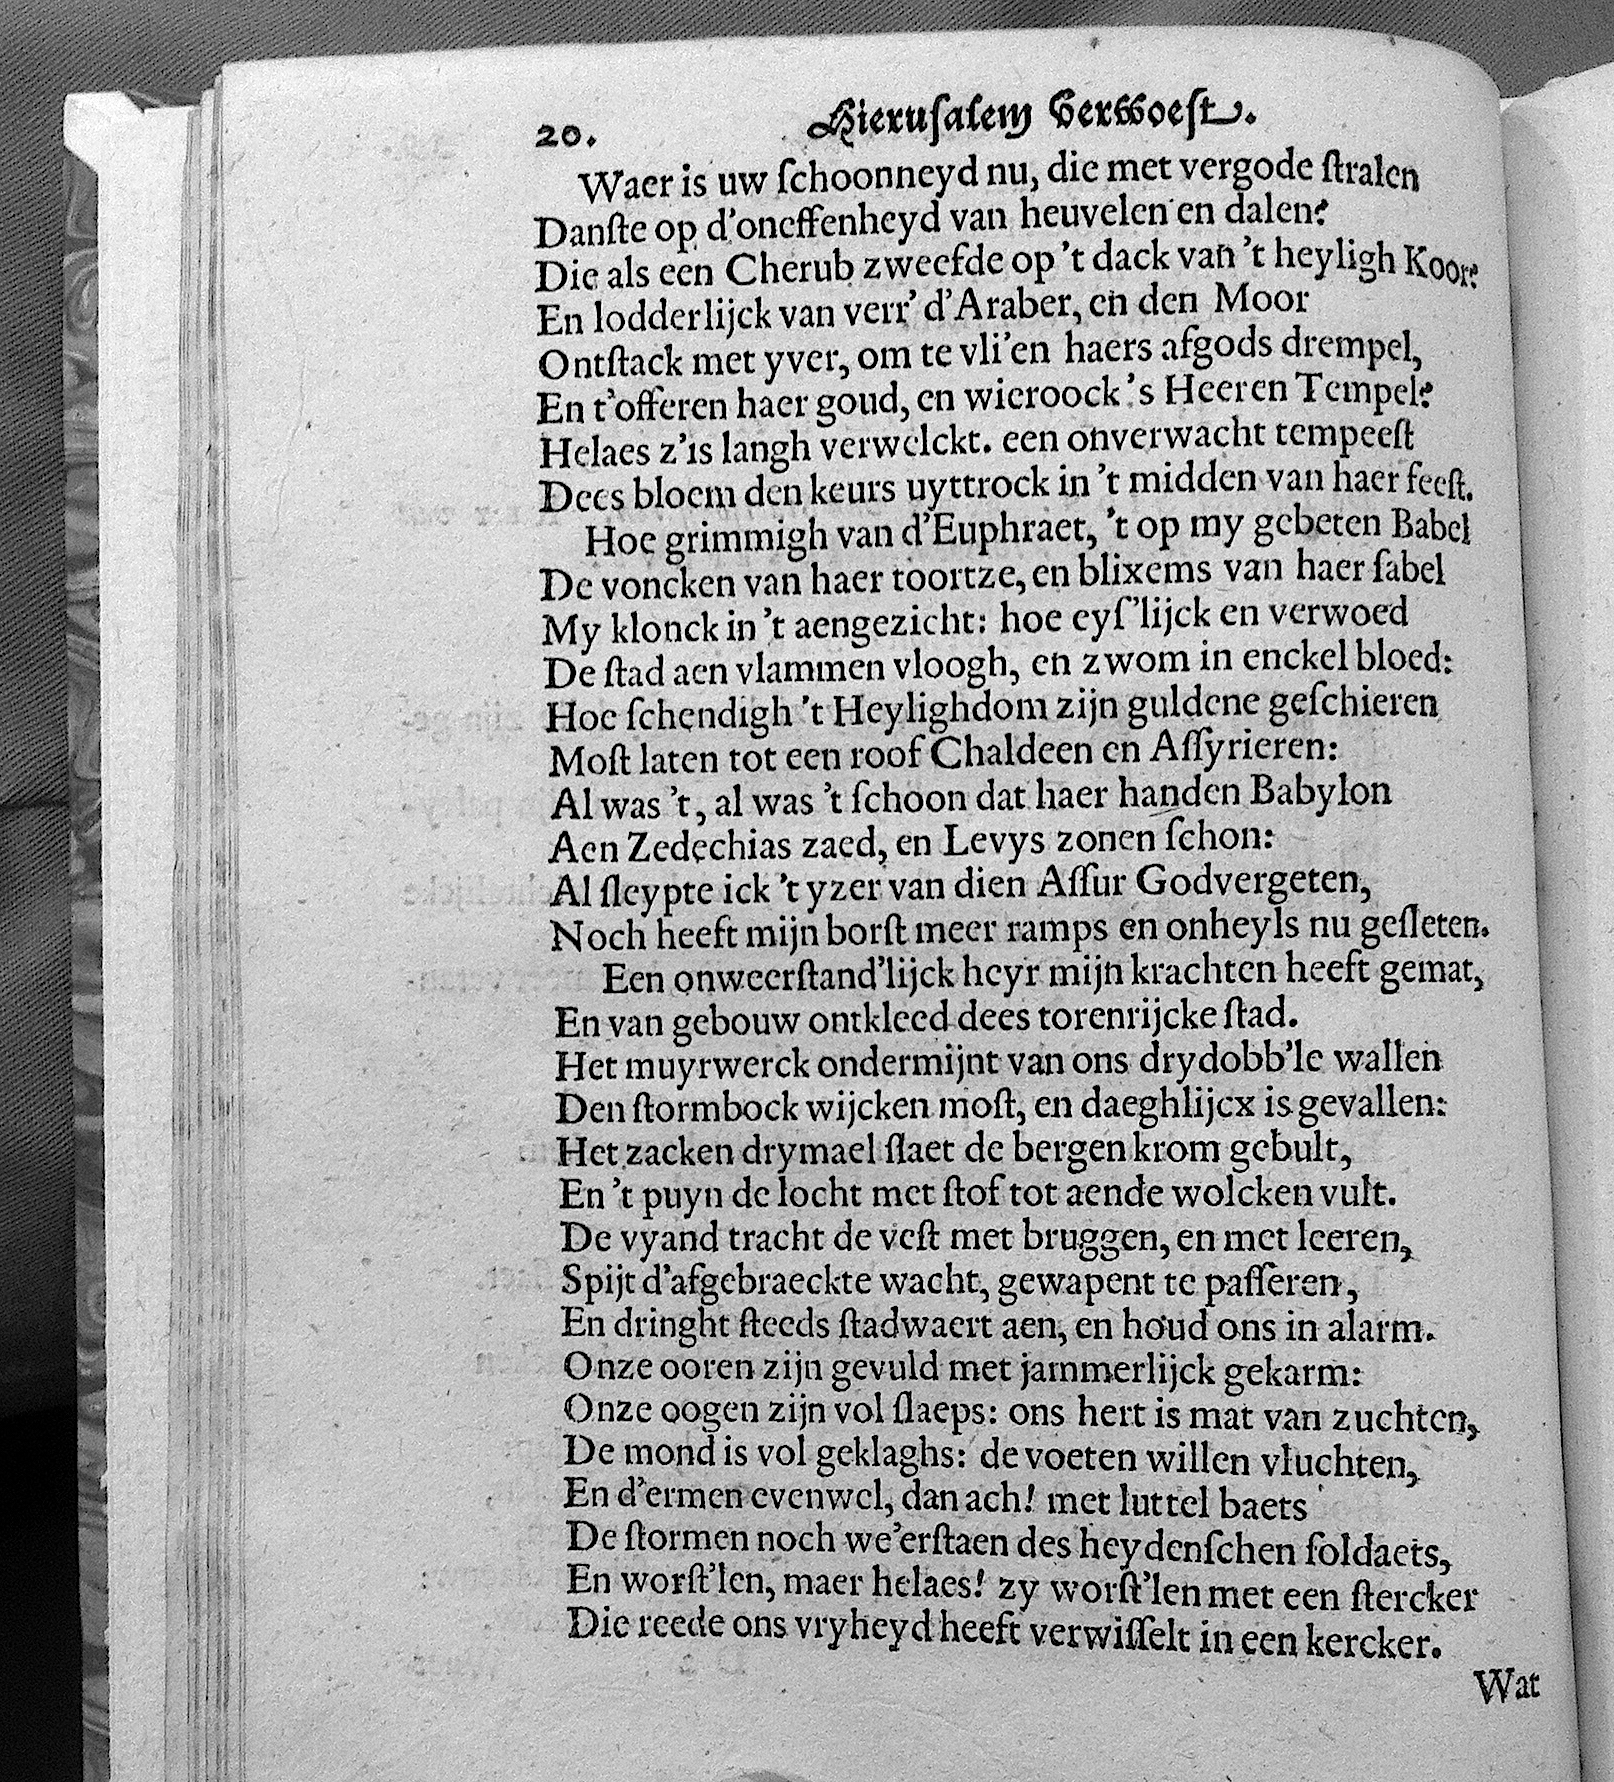 20. Hierusalem Verwoest.
Waer is uw ſchoonneyd nu, die met vergode ſtralen
Danſte op d'oneffenheyd van heuvelen en dalen?
Die als een Cherub zweefde op 't dack van 't heyligh Koor?
En lodderlijck van verr' d'Araber, en den Moor
Ontſtack met yver, om te vli'en haers afgods drempel,
En t'offeren haer goud, en wieroock 's Heeren Tempel?
Helaes z'is langh verwelckt. een onverwacht tempeeſt
Dees bloem den keurs uyttrock in 't midden van haer feeſt.
Hoe grimmigh van d'Euphraet, 't op my gebeten Babel
De voncken van haer toortze, en blixems van haer ſabel
My klonck in 't aengezicht: hoe eyſ'lijck en verwoed
De ſtad aen vlammen vloogh, en zwom in enckel bloed:
Hoe ſchendigh 't Heylighdom zijn guldene geſchieren
Moſt laten tot een roof Chaldeen en Aſſyrieren:
Al was 't, al was 't ſchoon dat haer handen Babylon
Aen Zedechias zaed, en Levys zonen ſchon:
Al ſleypte ick 't yzer van dien Aſſur Godvergeten,
Noch heeft mijn borſt meer ramps en onheyls nu geſleten.
Een onweerſtand'lijck heyr mijn krachten heeft gemat,
En van gebouw ontkleed dees torenrijcke ſtad.
Het muyrwerck ondermijnt van ons drydobb'le wallen
Den ſtormbock wijcken moſt, en daeghlijcx is gevallen:
Het zacken drymael ſlaet de bergen krom gebult,
En 't puyn de locht met ſtof tot aende wolcken vult.
De vyand tracht de veſt met bruggen, en met leeren,
Spijt d'afgebraeckte wacht, gewapent te paſſeren,
En dringht ſteeds ſtadwaert aen, en houd ons in alarm.
Onze ooren zijn gevuld met jammerlijck gekarm:
Onze oogen zijn vol ſlaeps: ons hert is mat van zuchten,
De mond is vol geklaghs: de voeten willen vluchten,
En d'ermen evenwel, dan ach! met luttel baets
De ſtormen noch we'erſtaen des heydenſchen ſoldaets,
En worſt'len, maer helaes! zy worſt'len met een ſtercker
Die reede ons vryheyd heeft verwiſſelt in een kercker.
Wat